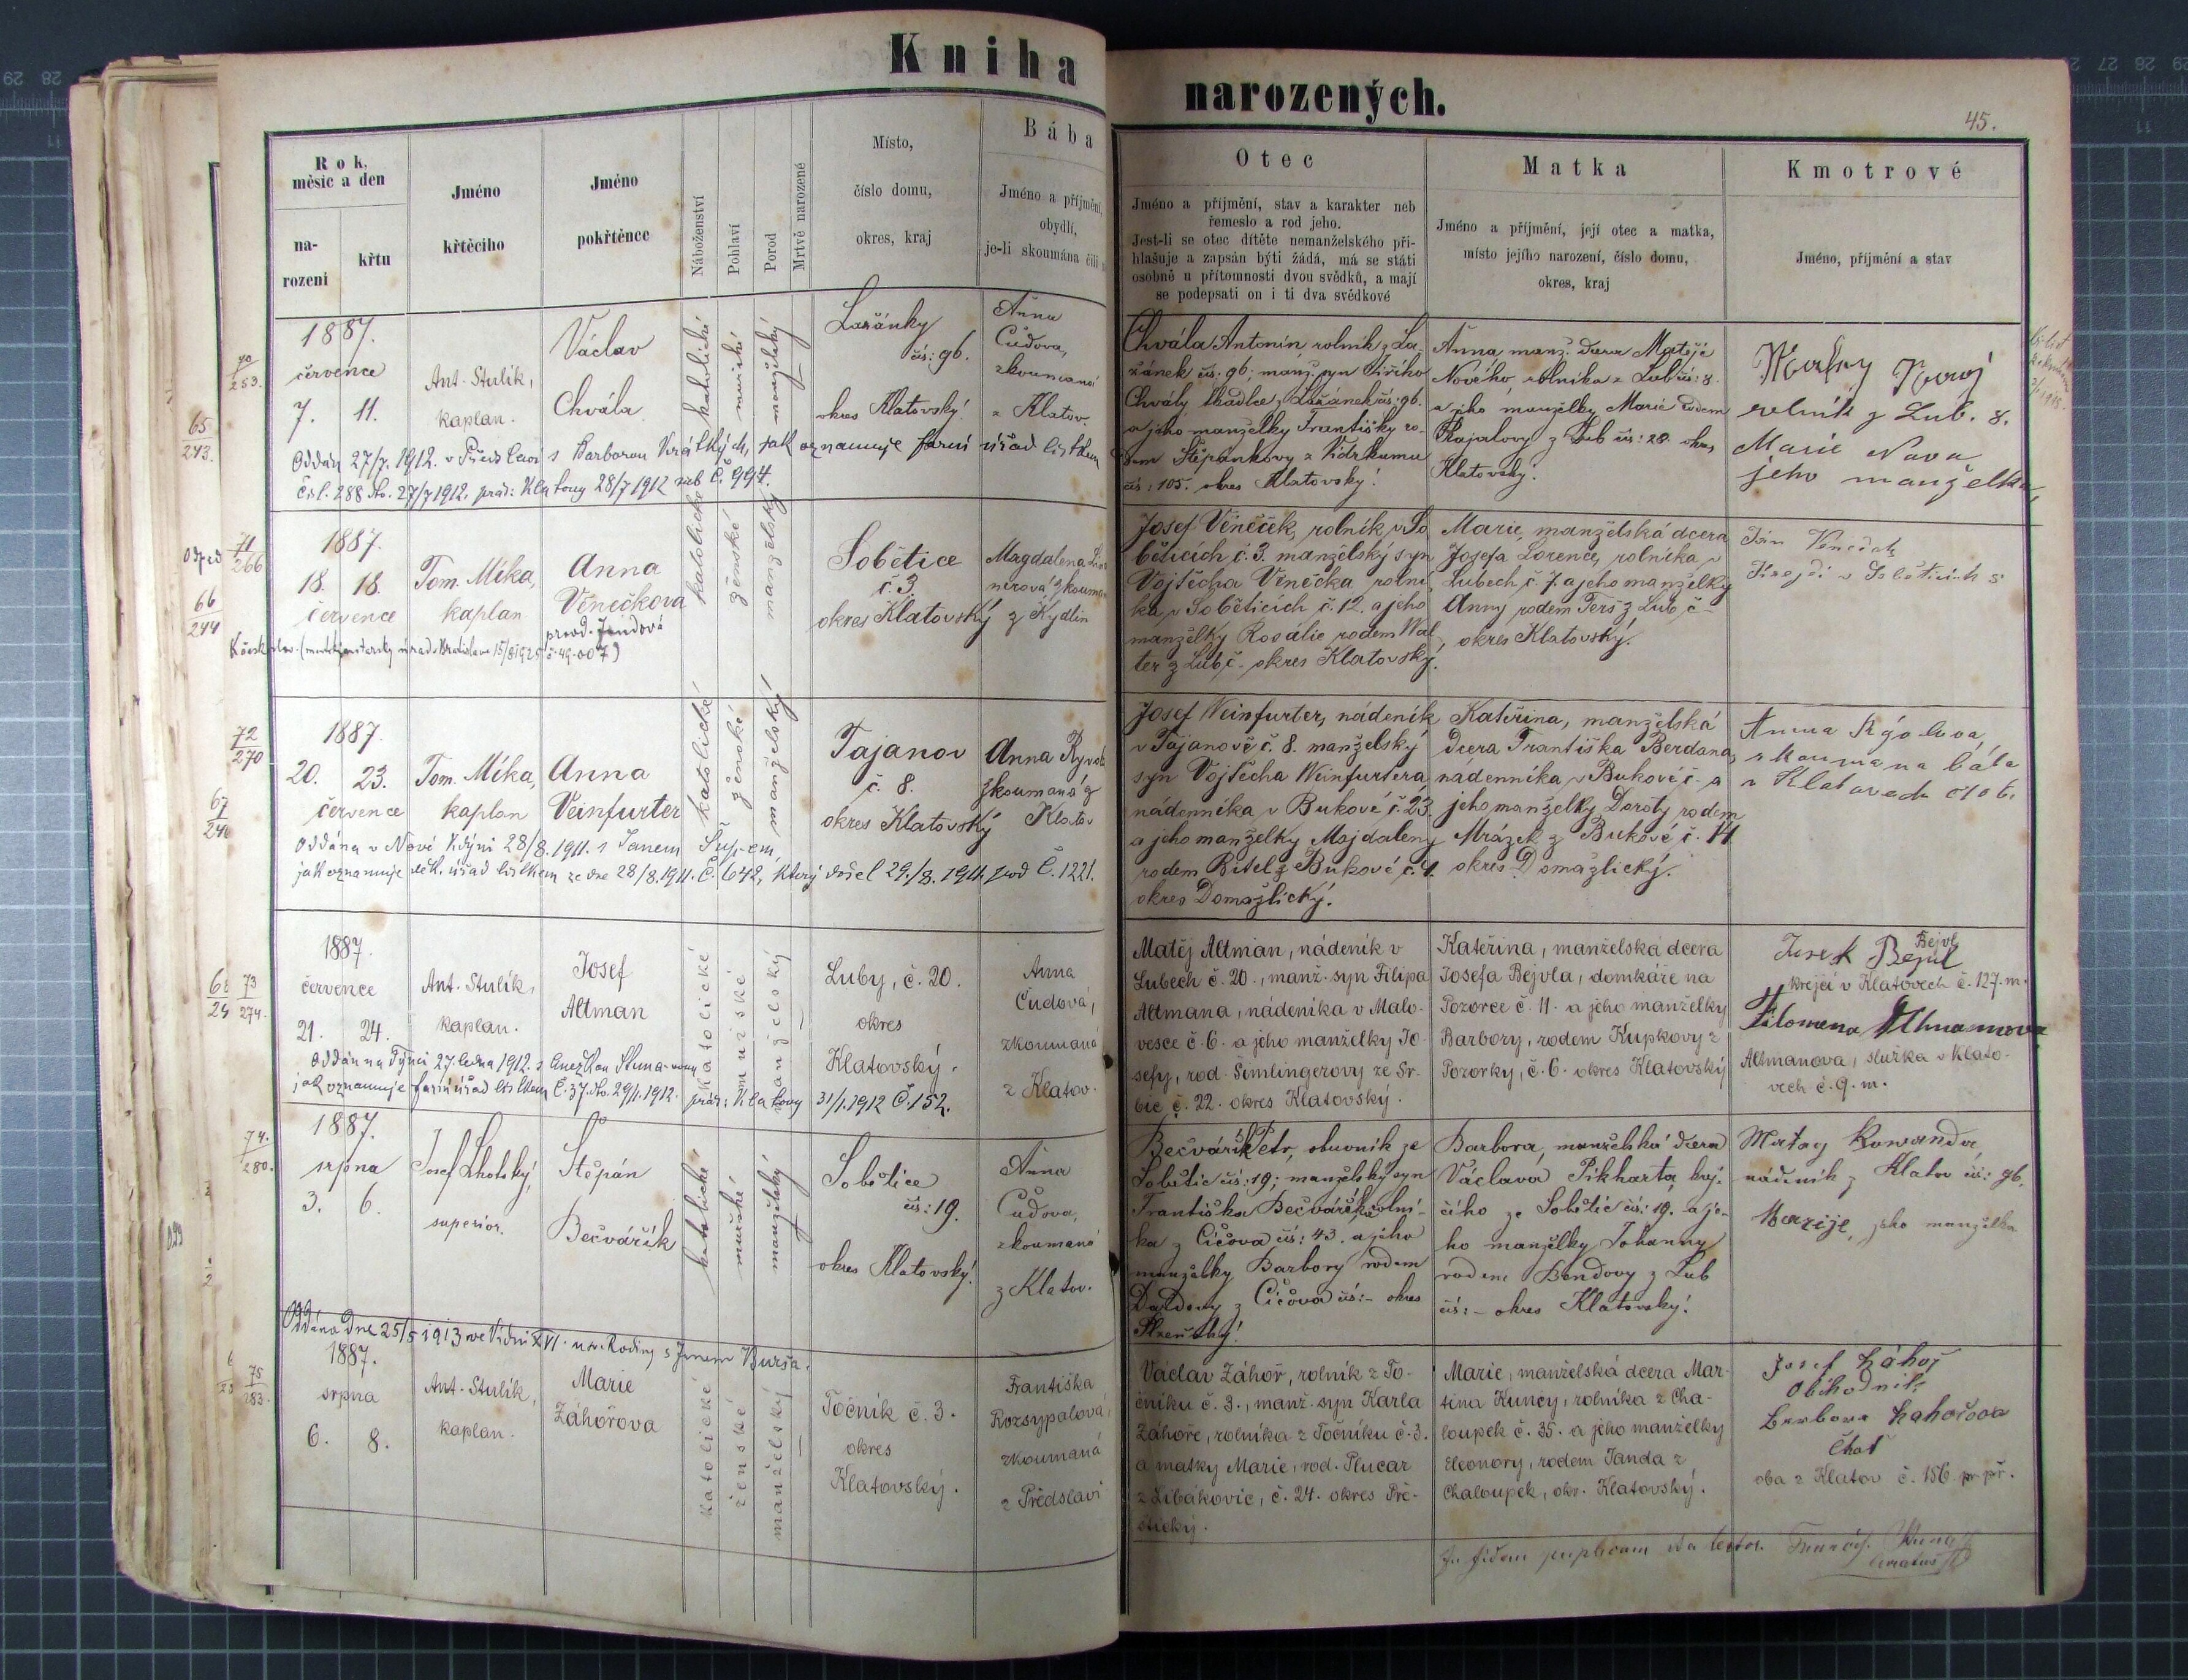 Kniha narozených.
45.
Rok, měsíc a den
narození
křtu
Jméno křtěcího
Jméno pokřtěnce
Náboženství
Pohlaví
Porod
Mrtvě narozené
Místo,
číslo domu,
okres, kraj
Bába
Jméno a příjmění,
obydlí,
je-li skoumána čili
Otec
Jméno a příjmění, stav a karakter neb
řemeslo a rod jeho.
Jest-li se otec dítěte nemanželského při-
hlašuje a zapsán býti žádá, má se státi
osobně u přítomnosti dvou svědků, a mají
se podepsati on i ti dva svědkové
Matka
Jméno a příjmění, její otec a matka,
místo jejího narození, číslo domu,
okres, kraj
Kmotrové
Jméno, příjmění a stav
70
253.
65
243.
1887.
července
7. 11.
Ant. Stulík,
kaplan.
Václav
Chvála
katolické
mužské
manželský
Lažánky
čís: 96.
okres Klatovský!
Anna
Čudova,
zkoumaná
z Klatov.
Chvála Antonín, rolník z La-
žánek čís: 96; manž. syn Jiřího
Chvály tkadlce z Lažánek čís: 96.
a jeho manželky Františky ro-
dem Štěpánkovy z Vidrkumu
čís: 105. okres Klatovský!
Anna manž. dcera Matěje
Nového rolníka z Lub čís: 8.
a jeho manželky Marie rodem
z Lub čís: 28. okres
Klatovský.
rolník z Lub. 8.
Marie Nova
jeho manželka,
Oddán 27/7. 1912. v Předslavi s Barborou Krátkých, jak oznamuje farní úřad lístkem
Čís. 288 dto. 27/7 1912. präs: Klatovy 28/7 1912 sub Č. 994.
71
266
66
244
1887.
18. 18.
července
Tom. Mika,
kaplan
Anna
Věnečkova
provd. Jindová
katolické
ženské
manželský
Sobětice
č. 3.
okres Klatovský
Magdalena
nerová zkouma
z Kydlin
Josef Věneček, rolník v So
běticích č. 3. manželský syn
Vojtěcha Věnečka rolní-
ka v Soběticích č. 12. a jeho
manželky Rosálie rodem Wal
ter z Lub č - okres Klatovský.
Marie, manželská dcera
Josefa Lorence, rolníka v
Lubech č. 7. a jeho manželky
Anny rodem Terš z Lub, č -
okres Klatovský.
Jan Věneček
72
270
67
1887.
20. 23.
července
Tom. Mika,
kaplan
Anna
Veinfurter
katolické
ženské
manželský
Tajanov
č. 8.
okres Klatovský
Anna
zkoumaná z
Klatov
Josef Weinfurter, nádeník
v Tajanově č. 8. manželský
syn Vojtěcha Weinfurtera
nádenníka v Bukové č. 23
a jeho manželky Majdaleny
rodem Bitel z Bukové č. 4.
okres Domažlický.
Kateřina, manželská
dcera Františka Berdana,
nádenníka v Bukové č - a
jeho manželky Doroty rodem
Mrázek z Bukové č. 14
okres Domažlický.
Anna Rýdlova,
zkoumana bába
v Klatovech
Oddána v Nové Kdýni 28/8. 1911. s Janem Šup-em,
jak oznamuje děk. úřad lístkem ze dne 28/8. 1911. Č. 642, který došel 29./8. 1911. pod Č. 1221.
73
274.
1887.
července
21. 24.
Ant. Stulík,
kaplan.
Josef
Altman
katolické
mužské
manželský
Luby, č. 20.
okres
Klatovský.
Anna
Čudová,
zkoumaná
z Klatov.
Matěj Altman, nádeník v
Lubech č. 20., manž. syn Filipa
Altmana, nádeníka v Malo-
vesce č. 6. a jeho manželky Jo-
sefy, rod. Šimlingerovy ze Sr-
bic č. 22. okres Klatovský.
Kateřina, manželská dcera
Josefa Bejvla, domkáře na
Pozorce č. 11. a jeho manželky
Barbory, rodem Kupkovy z
Pozorky, č. 6. okres Klatovský
Bejvl
Josef Bejvl
krejčí v Klatovech č. 127. m.
Filomena Altmannova
Altmanova, služka v Klato-
vech č. 9. m.
Oddán na Týnci 27. ledna 1912. s Anežkou
jak oznamuje farní úřad lístkem Č. 37. dto. 29/1. 1912. präs: Klatovy 31/1. 1912 Č. 152.
74.
280.
1887.
srpna
3. 6.
Josef Lhotský,
superior.
Štěpán
Bečvářík
katolické
mužské
manželský
Sobětice
čís: 19.
okres Klatovský!
Anna
Čudova,
zkoumaná
z Klatov.
Bečvářík Petr, obuvník ze
Sobětic čís: 19; manželský syn
Františka Bečvaříka, rolní-
ka z Čičova čís: 43. a jeho
manželky Barbory rodem
z Čičova čís: - okres
Plzeňský!
Barbora, manželská dcera
Václava Pikharta, krej-
čího ze Sobětic čís: 19. a je-
ho manželky Johanny
rodem Bendovy z Lub
čís: - okres Klatovský!
nádeník z Klatov čís: 96.
Marije, jeho manželka
Oddána dne 25/5 1913 ve Vídni XVI. u sv. Rodiny s Janem Burša.
75
283.
1887.
srpna
6. 8.
Ant. Stulík,
kaplan.
Marie
Záhořova
katolické
ženské
manželský
Točník č. 3.
okres
Klatovský.
Františka
Rozsypalová,
zkoumaná
z Předslavi
Václav Záhoř, rolník z To-
čníku č. 3., manž. syn Karla
Záhoře, rolníka z Točníku č. 3.
a matky Marie, rod. Plucar
z Libákovic, č. 24. okres Pře-
štický.
Marie, manželská dcera Mar-
tina Kuncy, rolníka z Cha-
loupek č. 35. a jeho manželky
Eleonory, rodem Janda z
Chaloupek, okr. Klatovský.
Josef Záhoř
Obchodník
Barbora Zahořova
Choť
oba z Klatov č. 156. pr. př.